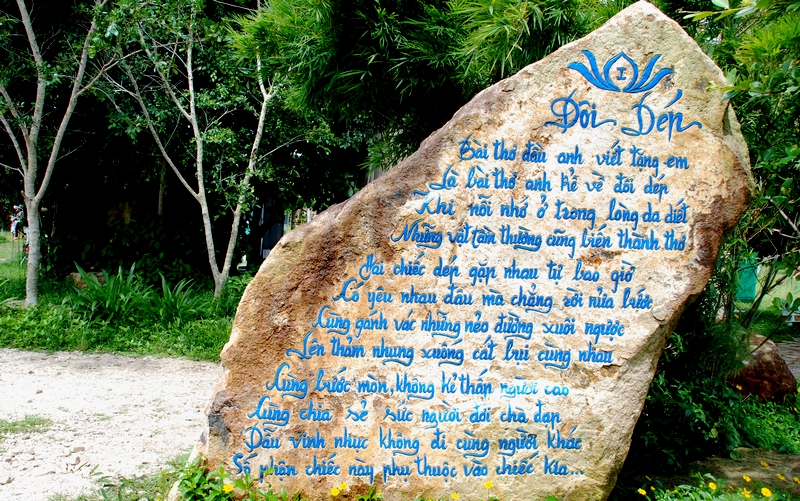 I
Đôi Dép
Bài thơ đầu anh viết tặng em
Là bài thơ anh kể về đôi dép
Khi nỗi nhớ ở trong lòng da diết
Những vật tầm thường cũng biến thành thơ
Hai chiếc dép gặp nhau tự bao giờ
Có yêu nhau đâu mà chẳng rời nửa bước
Cùng gánh vác những nẻo đường xuôi ngược
Lên thảm nhung xuống cát bụi cùng nhau
Cùng bước mòn, không kẻ thấp người cao
Cùng chia sẻ sức người đời chà đạp
Dẫu vinh nhục không đi cùng người khác
Số phận chiếc này phụ thuộc vào chiếc kia...